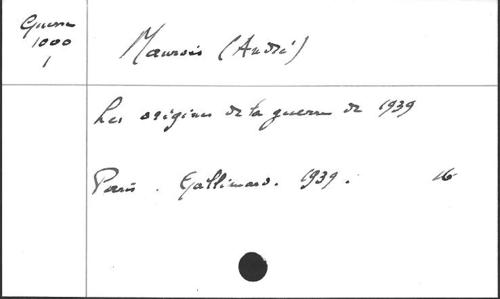 Guerre
1000
1
Maurois (André)
Les origines de la guerre de 1939
Paris. Gallimard. 1939. 16